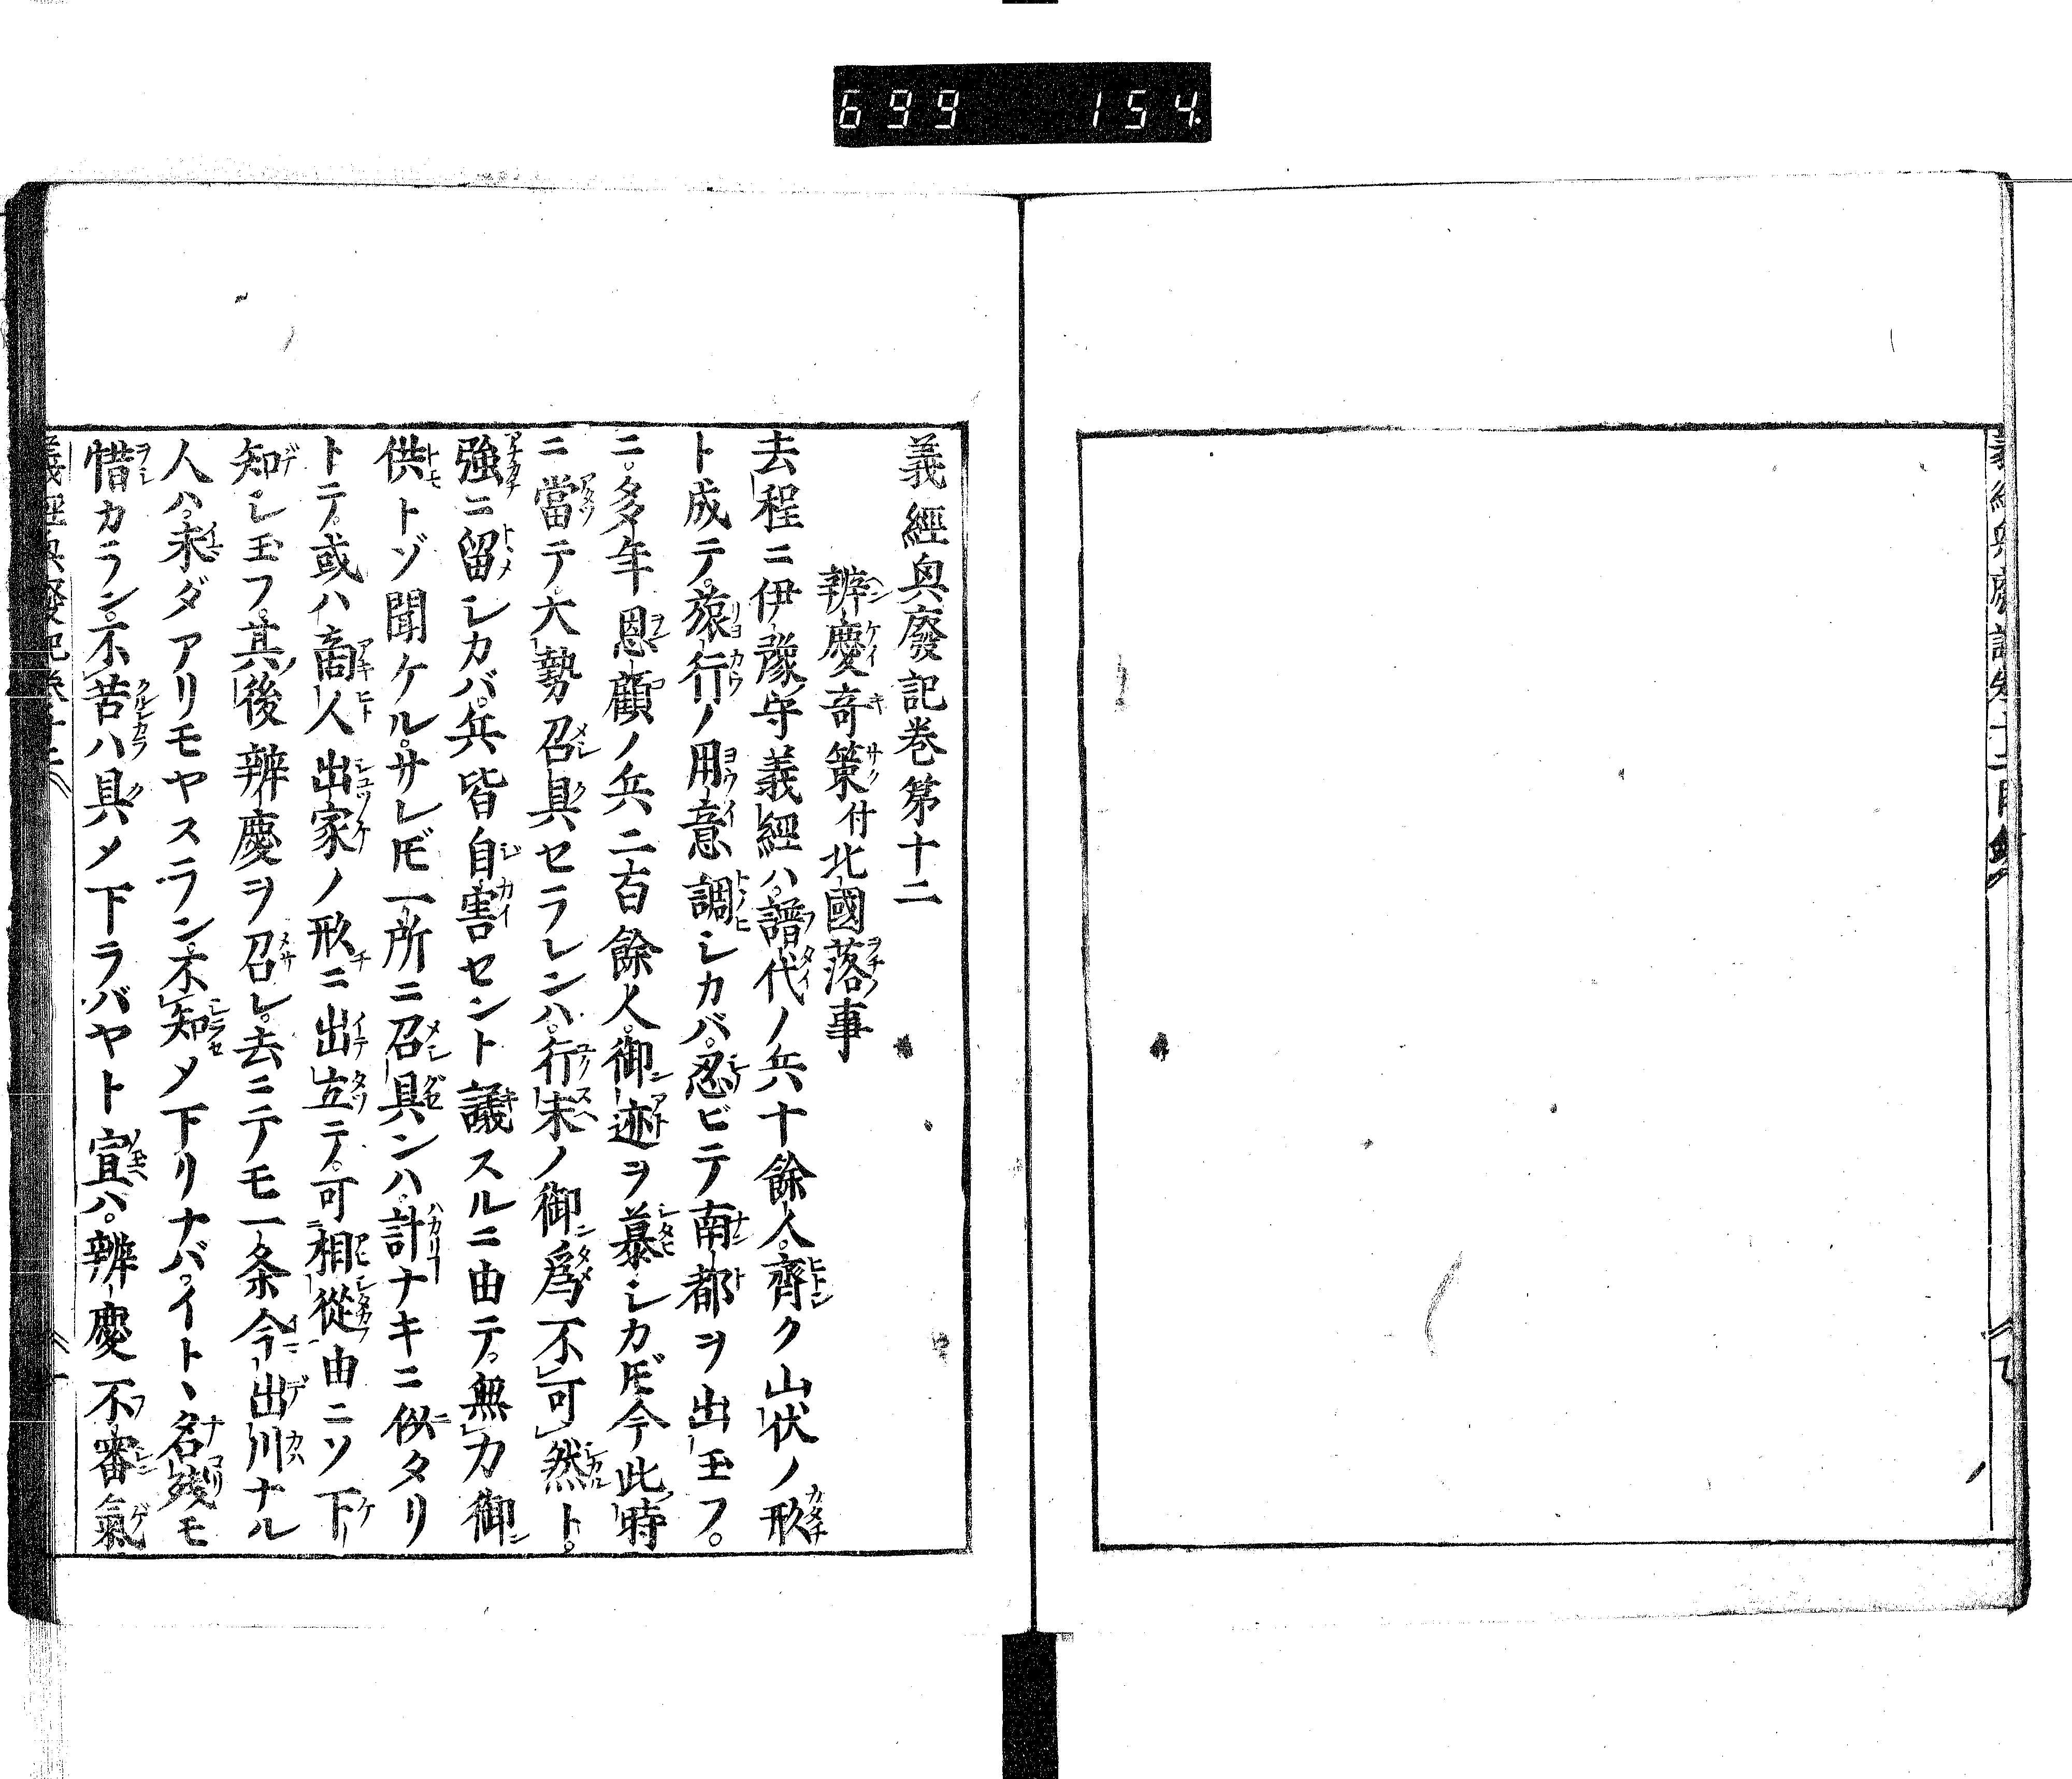 699 154
義經興廢記巻第十二
辨慶奇策付北國落事
去程ニ伊豫守義經ハ譜代ノ兵十餘人齊ク山伏ノ形
ト成テ旅行ノ用意調シカバ忍ビテ南都ヲ出玉フ
ニ多年恩顧ノ兵二百餘人御迹ヲ慕シカ𪜈今此時
ニ當テ大勢召具セラレンハ行末ノ御爲不可然ト
強ニ留シカバ兵皆自害セント議スルニ由テ無力御
供トゾ聞ケルサレ𪜈一所ニ召具ンハ計ナキニ似タリ
トテ或ハ商人出家ノ形ニ出立テ可相從由ニソ下
知シ玉フ其後辨慶ヲ召レ去ニテモ一条今出川ナル
人ハ未ダアリモヤスラン不知メ下リナバイトヽ名残モ
惜カラン不苦ハ具メ下ラバヤト宣ハ辨慶不審氣